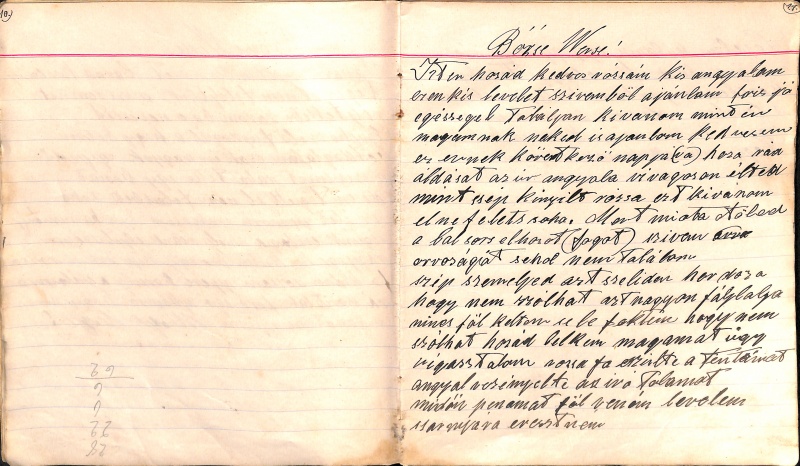 Bözse Verse!
Isten hozád kedves rózsám kis angyalom
ezen kis levelet szivemböl ajánlom friz jó
egésségel Találjan kivánom mint én
magamnak neked is ajanlom kedvesem
ez evnek követ kozó nappa (va) hoza rád
áldását az úr angyala vivagoson élted
mint szép kinyilt rózsa ezt kivánom
el ne felets soha. Mort miota Tőled
a bal sors elhozot (fogot) szivem
orvoságját sehol nem Talalom
szip szemeljed azt szeliden hordoza
hogy nem szólhat azt nagyon fájlalja
nincs föl keltem se le fektem hogy nem
szólhat hozád lelkem magamat úgy
vigasztalom rozsa fa szülte a Tentámat
angyal vezényelte az iró Tolamat
midőn penamat föl venóm levelem
szarnyára eresztnem
62
6
6
22
28